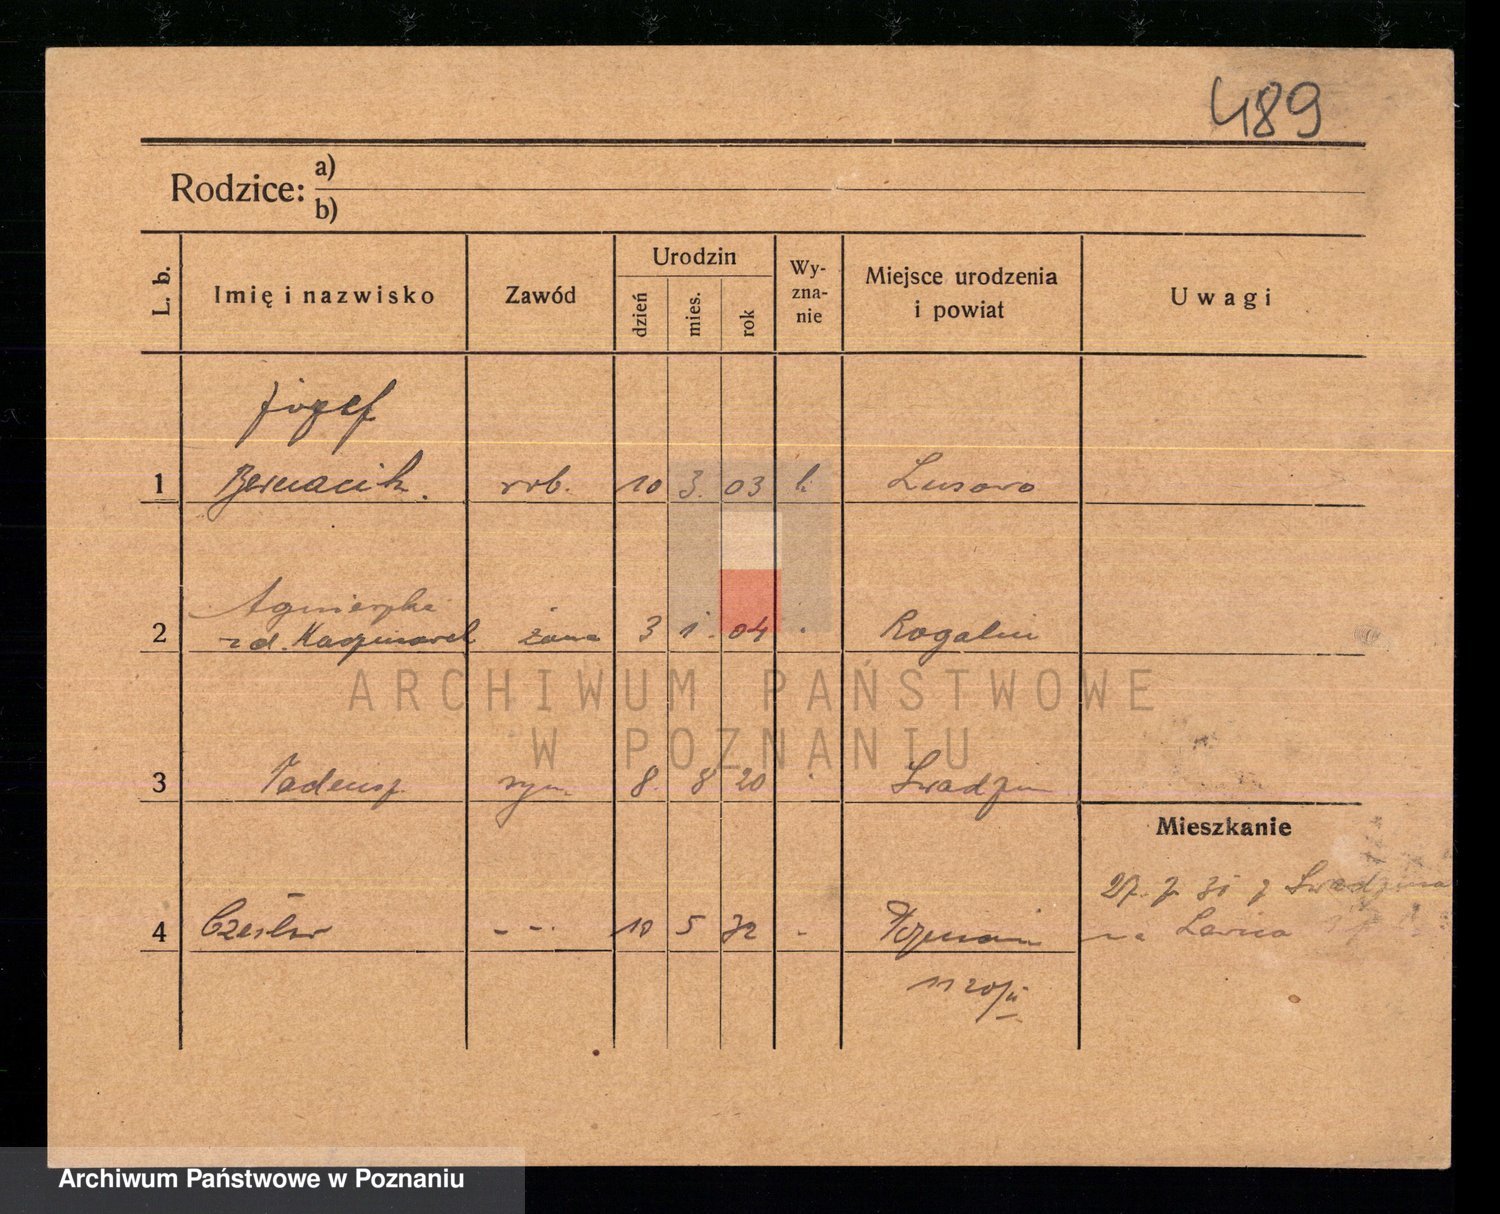 489
Rodzice: a)
b)
L. b. Imię i nazwisko Zawód Urodzin dzień mies. rok Wy-zna-nie Miejsce urodzenia i powiat Uwagi
Józef
1 Bernacik rob. 10 3. 03 k
Agnieszka
2 zd. żona 3 1. 04 Rogalin
ARCHIWUM PAŃSTWOWE
W POZNANIU
3 Tadeusz syn 8. 8 20 Swadzim
Mieszkanie
27. 7. 31 z Swadzima
4 Czesław - - - 10 5 32 -
na Ławica
11 20/II
Archiwum Państwowe w Poznaniu